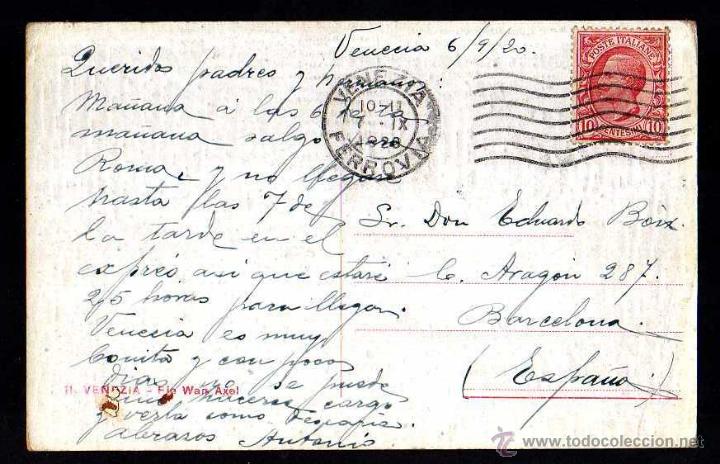 Venecia 6/9/20.
Queridos padres y
Mañana á las 6 de la
mañana salgo para
Roma, y no llegaré
hasta las 7 de
la tarde en el
exprés así que estaré
25 horas para llegar.
Venecia es muy
bonita y con pocos
dias que se puede
hacerse cargo
y verla como
abrazos Antonio
VENEZIA
10-11
IX
FERROVIA
POSTE ITALIANE
10 CENTESIMI 10
Sr. Don Eduardo Boix
C. Aragón 287.
Barcelona
(España)
11. VENEZIA - Rio Wan Axel
todocoleccion
© www.todocoleccion.net